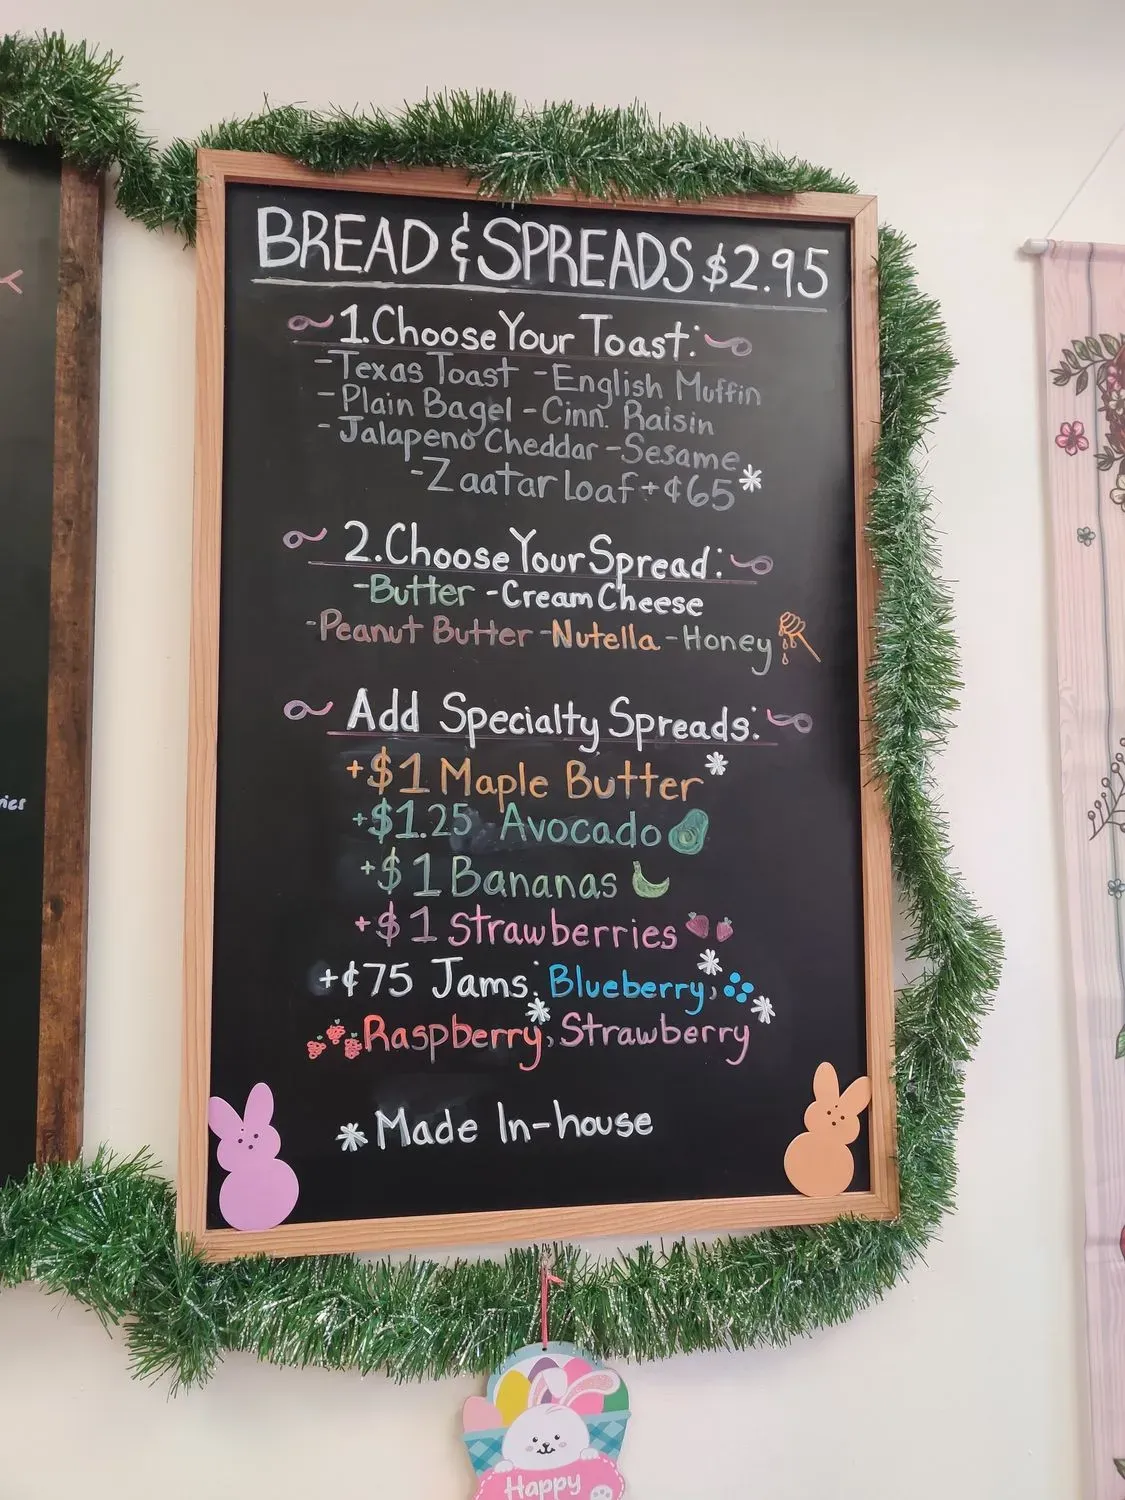 BREAD & SPREADS $2.95
1. Choose Your Toast:
-Texas Toast -English Muffin
-Plain Bagel -Cinn. Raisin
-Jalapeno Cheddar -Sesame
-Zaatar Loaf +¢65*
2. Choose Your Spread:
-Butter -Cream Cheese
-Peanut Butter -Nutella -Honey
Add Specialty Spreads:
+$1 Maple Butter*
+$1.25 Avocado
+$1 Bananas
+$1 Strawberries
+¢75 Jams: Blueberry*,
Raspberry*, Strawberry*
*Made In-house
Happy